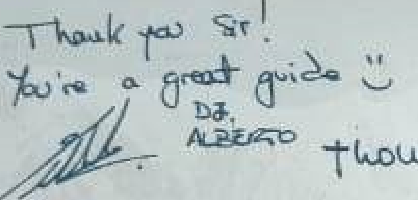 Thank you Sir!
You're a great guide :)
DJ.
ALBERTO